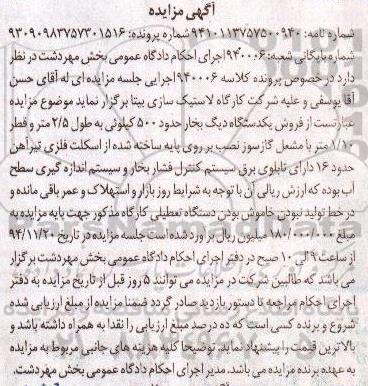 آگهی مزایده
شماره نامه: ۹۴۱۰۱۱۳۷۵۷۵۰۰۹۴۰ شماره پرونده: ۹۳۰۹۰۹۸۳۷۵۷۳۰۱۵۱۶
شماره بایگانی شعبه: ۹۴۰۰۰۶ اجرای احکام دادگاه عمومی بخش مهردشت در نظر
دارد در خصوص پرونده کلاسه ۹۴۰۰۰۶ اجرایی جلسه مزایده ای له آقای حسن
آقا یوسفی و علیه شرکت کارگاه لاستیک سازی بیتا برگزار نماید موضوع مزایده
عبارتست از فروش یکدستگاه دیگ بخار حدود ۵۰۰ کیلوئی به طول ۲/۵ متر و قطر
۱/۱۰ متر با مشعل گازسوز نصب بر روی پایه ساخته شده از اسکلت فلزی تیرآهن
حدود ۱۶ دارای تابلوی برق سیستم کنترل فشار بخار و سیستم اندازه گیری سطح
آب بوده که ارزش ریالی آن با توجه به شرایط روز بازار و استهلاک و عمر باقی مانده و
در خط تولید نبودن خاموش بودن دستگاه تعطیلی کارگاه مذکور جهت پایه مزایده به
مبلغ ۱۸۰/۰۰۰/۰۰۰ میلیون ریال برآورد شده است جلسه مزایده در تاریخ ۹۴/۱۱/۲۰
از ساعت ۹ الی ۱۰ صبح در دفتر اجرای احکام دادگاه عمومی بخش مهردشت برگزار
می باشد که طالبین شرکت در مزایده می توانند ۵ روز قبل از تاریخ مزایده به دفتر
اجرای احکام مراجعه تا دستور بازدید صادر گردد ضمنا مزایده از مبلغ ارزیابی شده
شروع و برنده کسی است که ده درصد مبلغ ارزیابی را نقدا به همراه داشته باشد و
بالاترین قیمت را پیشنهاد نماید. توضیحا کلیه هزینه های جانبی مربوط به مزایده
به عهده برنده مزایده می باشد. مدیر اجرای احکام دادگاه عمومی بخش مهردشت.